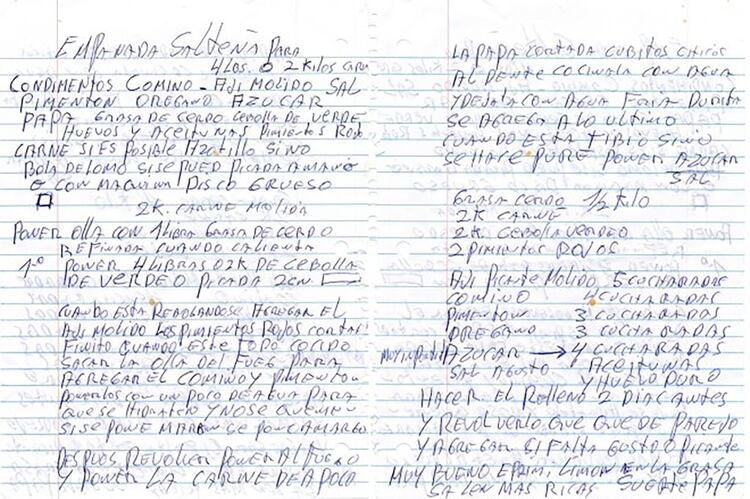 EMPANADA SALTEÑA PARA
4 LBS. O 2 KILOS CARN
CONDIMENTOS COMINO - AJI MOLIDO SAL
PIMENTON OREGANO AZUCAR
PAPA GRASA DE CERDO CEBOLLA DE VERDE
HUEVOS Y ACEITUNAS PIMIENTOS ROJO
CARNE SI ES POSIBLE SINO
BOLA DE LOMO SI SE PUED PICADA A MANO
O CON MAQUINA DISCO GRUESO
2K. CARNE MOLIDA
PONER OLLA CON 1 LIBRA GRASA DE CERDO
REFINADA CUANDO CALIENTA
1º PONER 4 LIBRAS O 2K DE CEBOLLA
DE VERDEO PICADA 2CM
CUANDO ESTA REHOGANDOSE AGREGAR EL
AJI MOLIDO LOS PIMIENTOS ROJOS CORTAR
FINITO CUANDO ESTE TODO COCIDO
SACAR LA OLLA DEL FUEG PARA
AGREGAR EL COMINO Y PIMENTON
PONERLOS CON UN POCO DE AGUA PARA
QUE SE Y NO SE QUEMEN
SI SE PONE
DESPUES REVOLVER PONER AL FUEGO
Y PONER LA CARNE DE A POCO
LA PAPA CORTADA CUBITOS CHICOS
AL DENTE COCINALA CON AGUA
Y DEJALA CON AGUA FRIA DURITA
SE AGREGA A LO ULTIMO
CUANDO ESTA TIBIO SINO
SE HACE PURE PONER AZUCAR
SAL
GRASA CERDO 1/2 KILO
2K CARNE
2K CEBOLLA VERDEO
2 PIMIENTOS ROJOS
AJI PICANTE MOLIDO 5 CUCHARADAS
COMINO 4 CUCHARADAS
PIMENTON 3 CUCHARADAS
OREGANO 3 CUCHARADAS
AZUCAR → 4 CUCHARADAS
SAL AGUSTO ACEITUNAS
Y HUEVO DURO
HACER EL RELLENO 2 DIAS ANTES
Y REVOLVERLO QUE QUEDE PAREJO
Y AGREGAR SI FALTA GUSTO O PICANTE
MUY BUENO LIMON EN LA GRASA
SALEN MAS RICAS PAPA